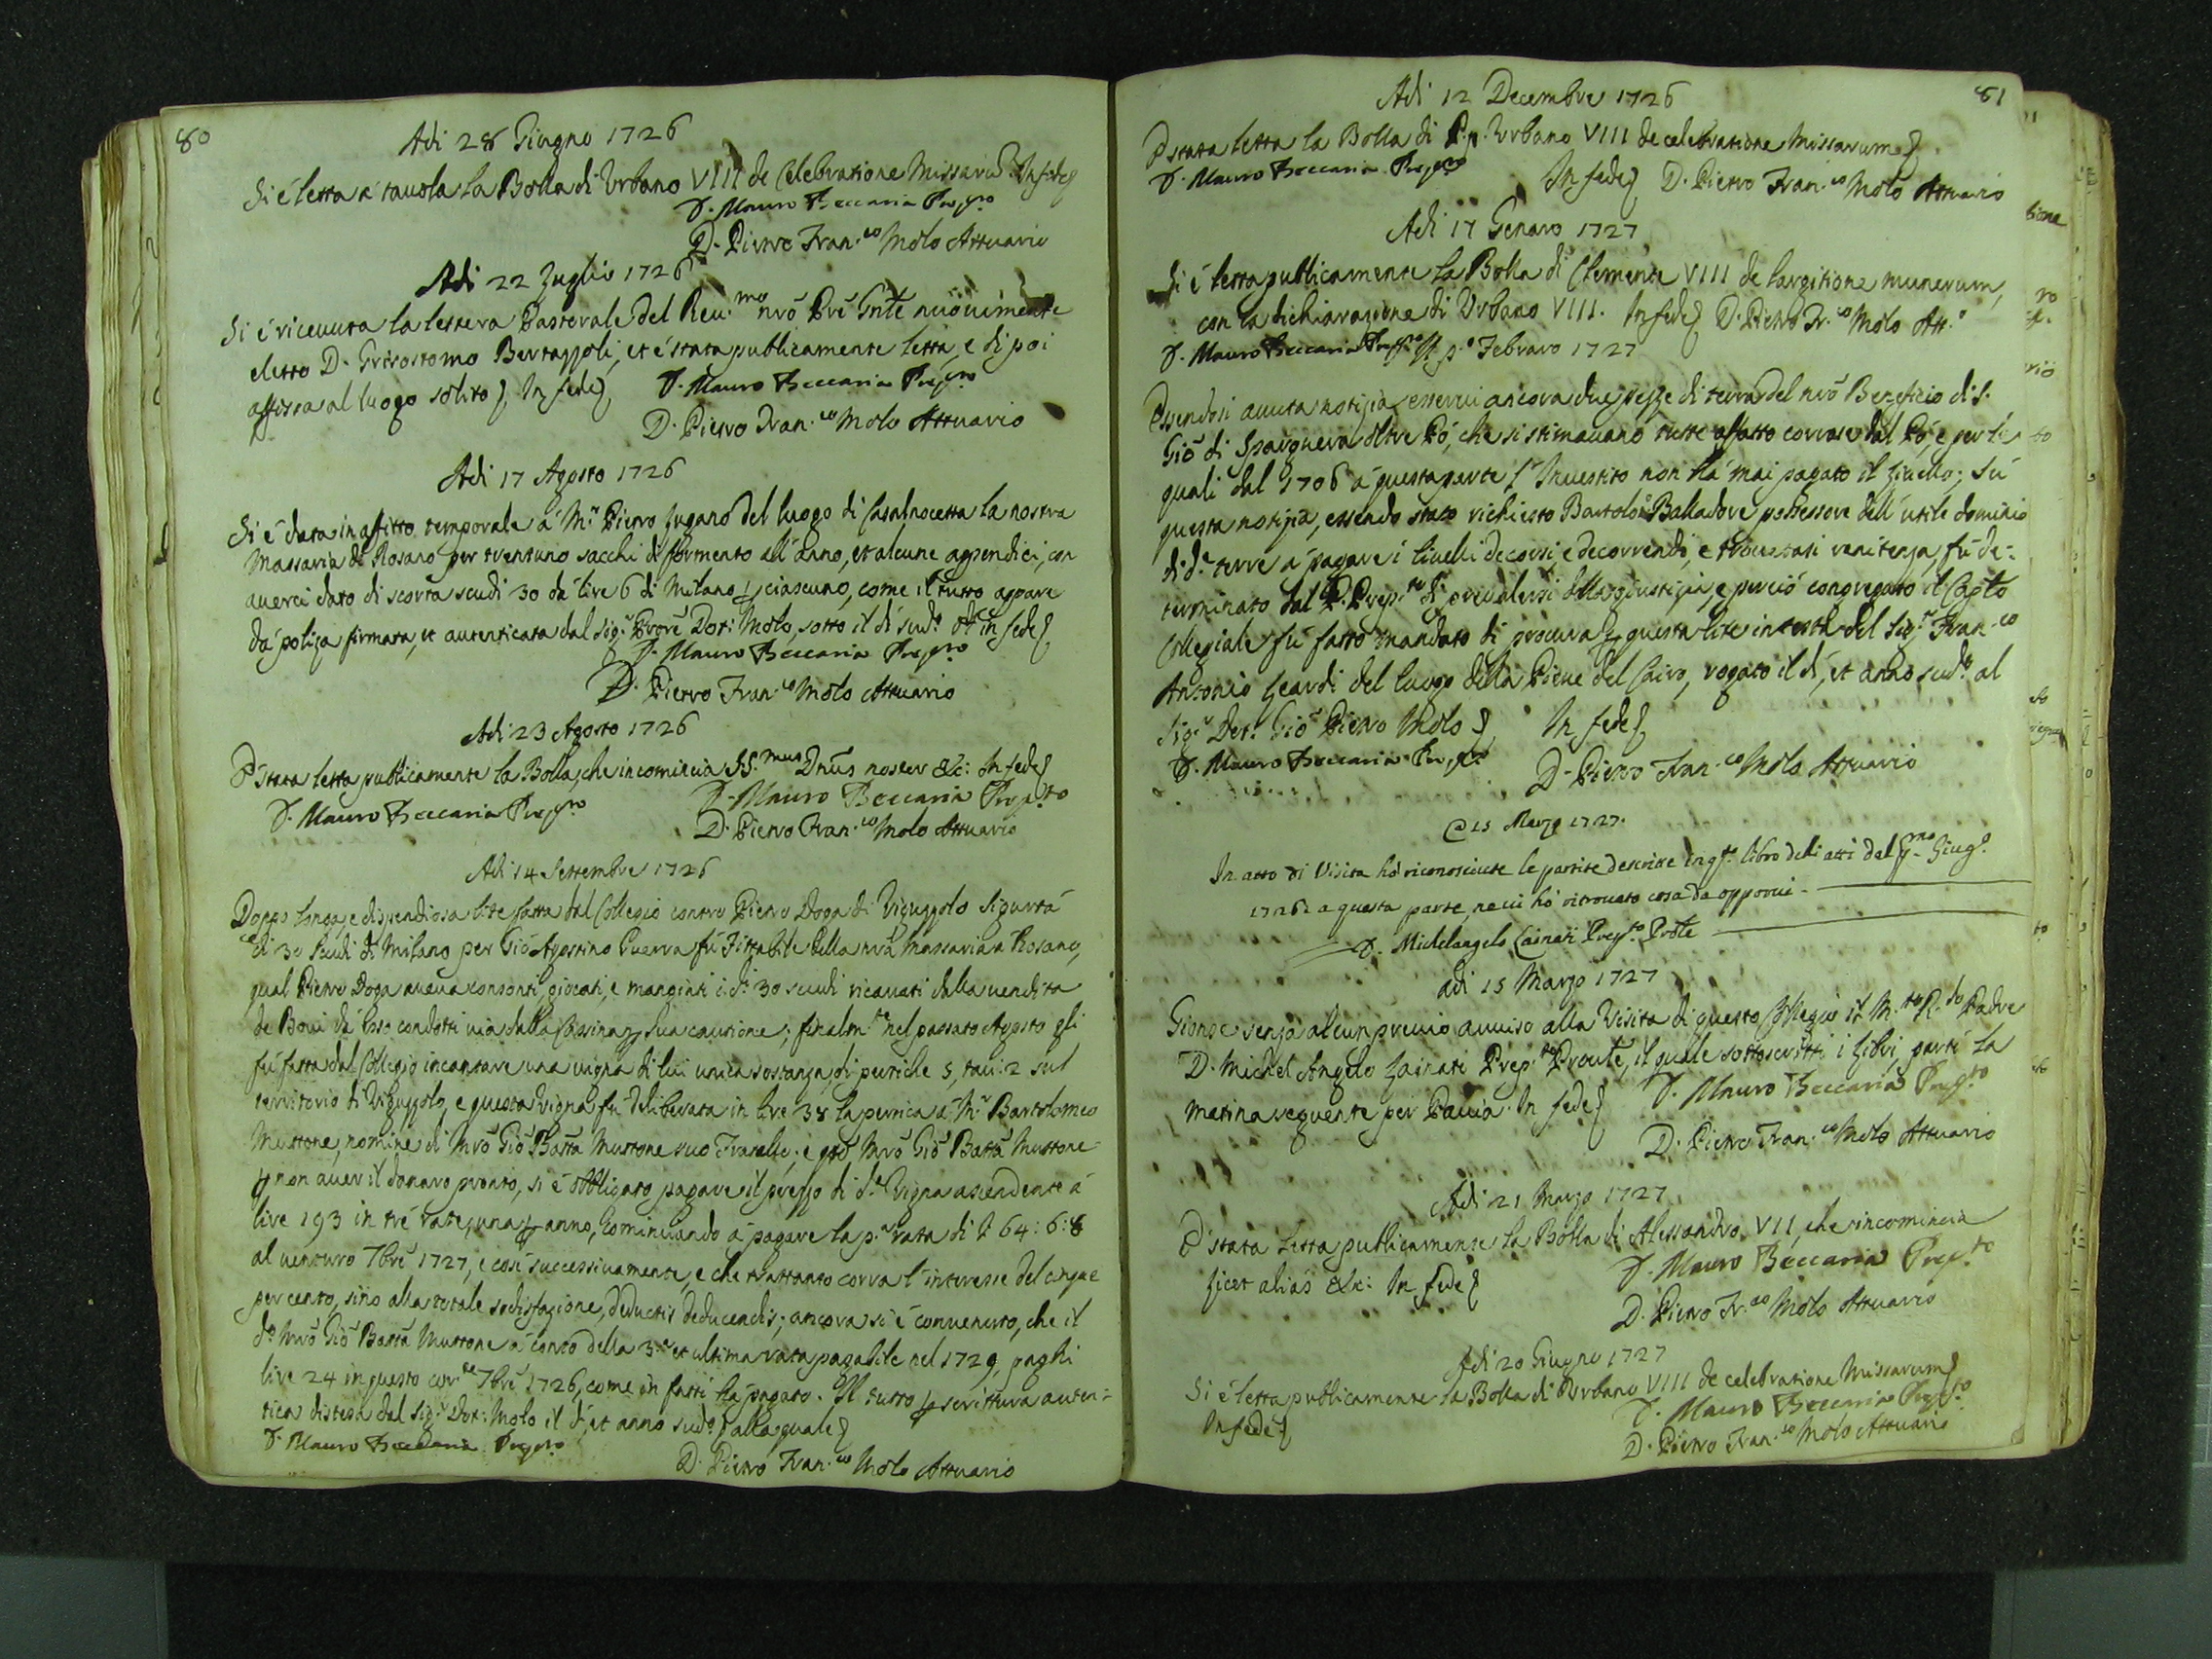 80
Adi 28 Giugno 1726
Si é letta á tauola la Bolla di Vrbano VIII de Celebratione Missarũ In fede
D. Mauro Beccaria Prep.to
D. Pietro Fran.co Molo Attuario
Adi 22 Luglio 1726
Si é riceuuta la lettera Pastorale del Reu.mo nrõ Prẽ Gñle nuouamente
eletto D. Grisostomo Bertazzoli, et é stata publicamente letta, e di poi
affissa al luogo solito, In fede D. Mauro Beccaria Prep.to
D. Pietro Fran.co Molo Attuario
Adi 17 Agosto 1726
Si é data in affitto temporale á M.r Pietro Lugano del luogo di Casalnocetta la nostra
Massaria di Rosano per trentuno sacchi di formento all'anno, et alcune appendici, con
auerci dato di scorta scudi 30 da lire 6 di Milano ciascuno, come il tutto appare
da poliza firmata, et autenticata dal Sig.r Dot: Molo, sotto il dí sud.o In fede
D. Mauro Beccaria Prep.to
D. Pietro Fran.co Molo Attuario
Adi 23 Agosto 1726
É stata letta publicamente la Bolla, che incomincia SS.mus Dnũs noster &c: In fede
D. Mauro Beccaria Prep.to D. Mauro Beccaria Prep.to
D. Pietro Fran.co Molo Attuario
Adi 14 Settembre 1726
Doppo longa, e dispendiosa lite fatta dal Collegio contro Pietro Doga di Viguzzolo Sigurtá
di 30 Scudi di Milano per Gio Agostino Guerra fú Fittabile della nrã Massaria á Rosano,
qual Pietro Doga aueua consonti, giocati, e mangiati i d.i 30 scudi ricauati dalla uendita
de Boui dá esso condotti uia dalla Cassina sua cautione; finalm.te nel passato Agosto gli
fú fatta dal Collegio incantare una uigna di lui unica sostanza, di pertiche 5, tau: 2 sul
territorio di Viguzzolo, e questa Vigna fú deliberata in lire 38 la pertica á M.r Bartolomeo
Muttone, nomine di Mrõ Gio Battã Muttone suo Fratello; e qtõ Mrõ Gio Battã Muttone
non auer il danaro pronto, si é obbligato pagare il prezzo di d.a Vigna ascendente á
lire 193 in tré rate, una anno, cominciando á pagare la p.a rata di £ 64:6:8
al uenturo 7brẽ 1727, e cosí successiuamente, e che trattanto corra l'interesse del cinque
per cento, sino alla totale sodisfazione, deductis deducendis; ancora si é conuenuto, che il
d.o Mrõ Gio Battã Muttone á conto della 3.a et ultima rata pagabile nel 1729, paghi
lire 24 in questo corr.te 7brẽ 1726, come in fatti há pagato. Il tutto scrittura auten=
tica distesa dal Sig.r Dot: Molo il dí, et anno sud.o alla quale
D. Mauro Beccaria Prep.to
D. Pietro Fran.co Molo Attuario
81
Adi 12 Decembre 1726
É stata letta la Bolla di P.p. Vrbano VIII de celebratione Missarum
D. Mauro Beccaria Prep.to In fede D. Pietro Fran.co Molo Attuario
Adi 17 Genaro 1727
Si é letta publicamente la Bolla di Clemente VIII de largitione munerum,
con la dichiarazione di Vrbano VIII. In fede D. Pietro Fr.co Molo Att.o
D. Mauro Beccaria Prep.to Il p.o Febraro 1727
Essendosi auuta notizia esserui ancora due pezze di terra del nrõ Beneficio di S.
Gio di Sparguera oltre Pó, che si stimauano tutte affatto corrose dal Pó, e per le
quali dal 1706 á questa parte l'Inuestito non há mai pagato il liuello; Sú
questa notizia, essendo stato richiesto Bartolo Balladore possessore dell'utile dominio
di d.e terre á pagare i liuelli decorsi, e decorrendi, e trouatasi renitenza, fú de-
terminato dal P. Prep.to di preualersi della giustizia, e perció congregato il Cap.to
Collegiale fú fatto mandato di procura questa lite in testa del Sig.r Fran.co
Antonio Geardi del luogo della Pieue del Cairo, rogato il dí, et anno sud.o al
Sig.r Dot: Gio Pietro Molo In fede
D. Mauro Beccaria Prep.to
D. Pietro Fran.co Molo Attuario
@ 15 Marzo 1727.
In atto di Visita hó riconosciute le partite descritte in q.to libro delli atti dal Giug.o
1726 a questa parte, ne ui hó ritrouato cosa da opporui
D. Michelangelo Lainati Prep.to Proũle
adi 15 Marzo 1727
Gionse senza alcun preuio auuiso alla Visita di questo Collegio il M.to R.do Padre
D. Michel Angelo Lainati Prep.to Proũle, il quale sottoscritti i Libri, partí la
matina seguente per Pauia. In fede D. Mauro Beccaria Prep.to
D. Pietro Fran.co Molo Attuario
Adi 21 Marzo 1727
É stata letta publicamente la Bolla di Alessandro VII, che incomincia
licet alias &c: In fede D. Mauro Beccaria Prep.to
D. Pietro Fr.co Molo Attuario
Adi 20 Giugno 1727
Si é letta publicamente la Bolla di Vrbano VIII de celebratione Missarum
In fede D. Mauro Beccaria Prep.to
D. Pietro Fran.co Molo Attuario